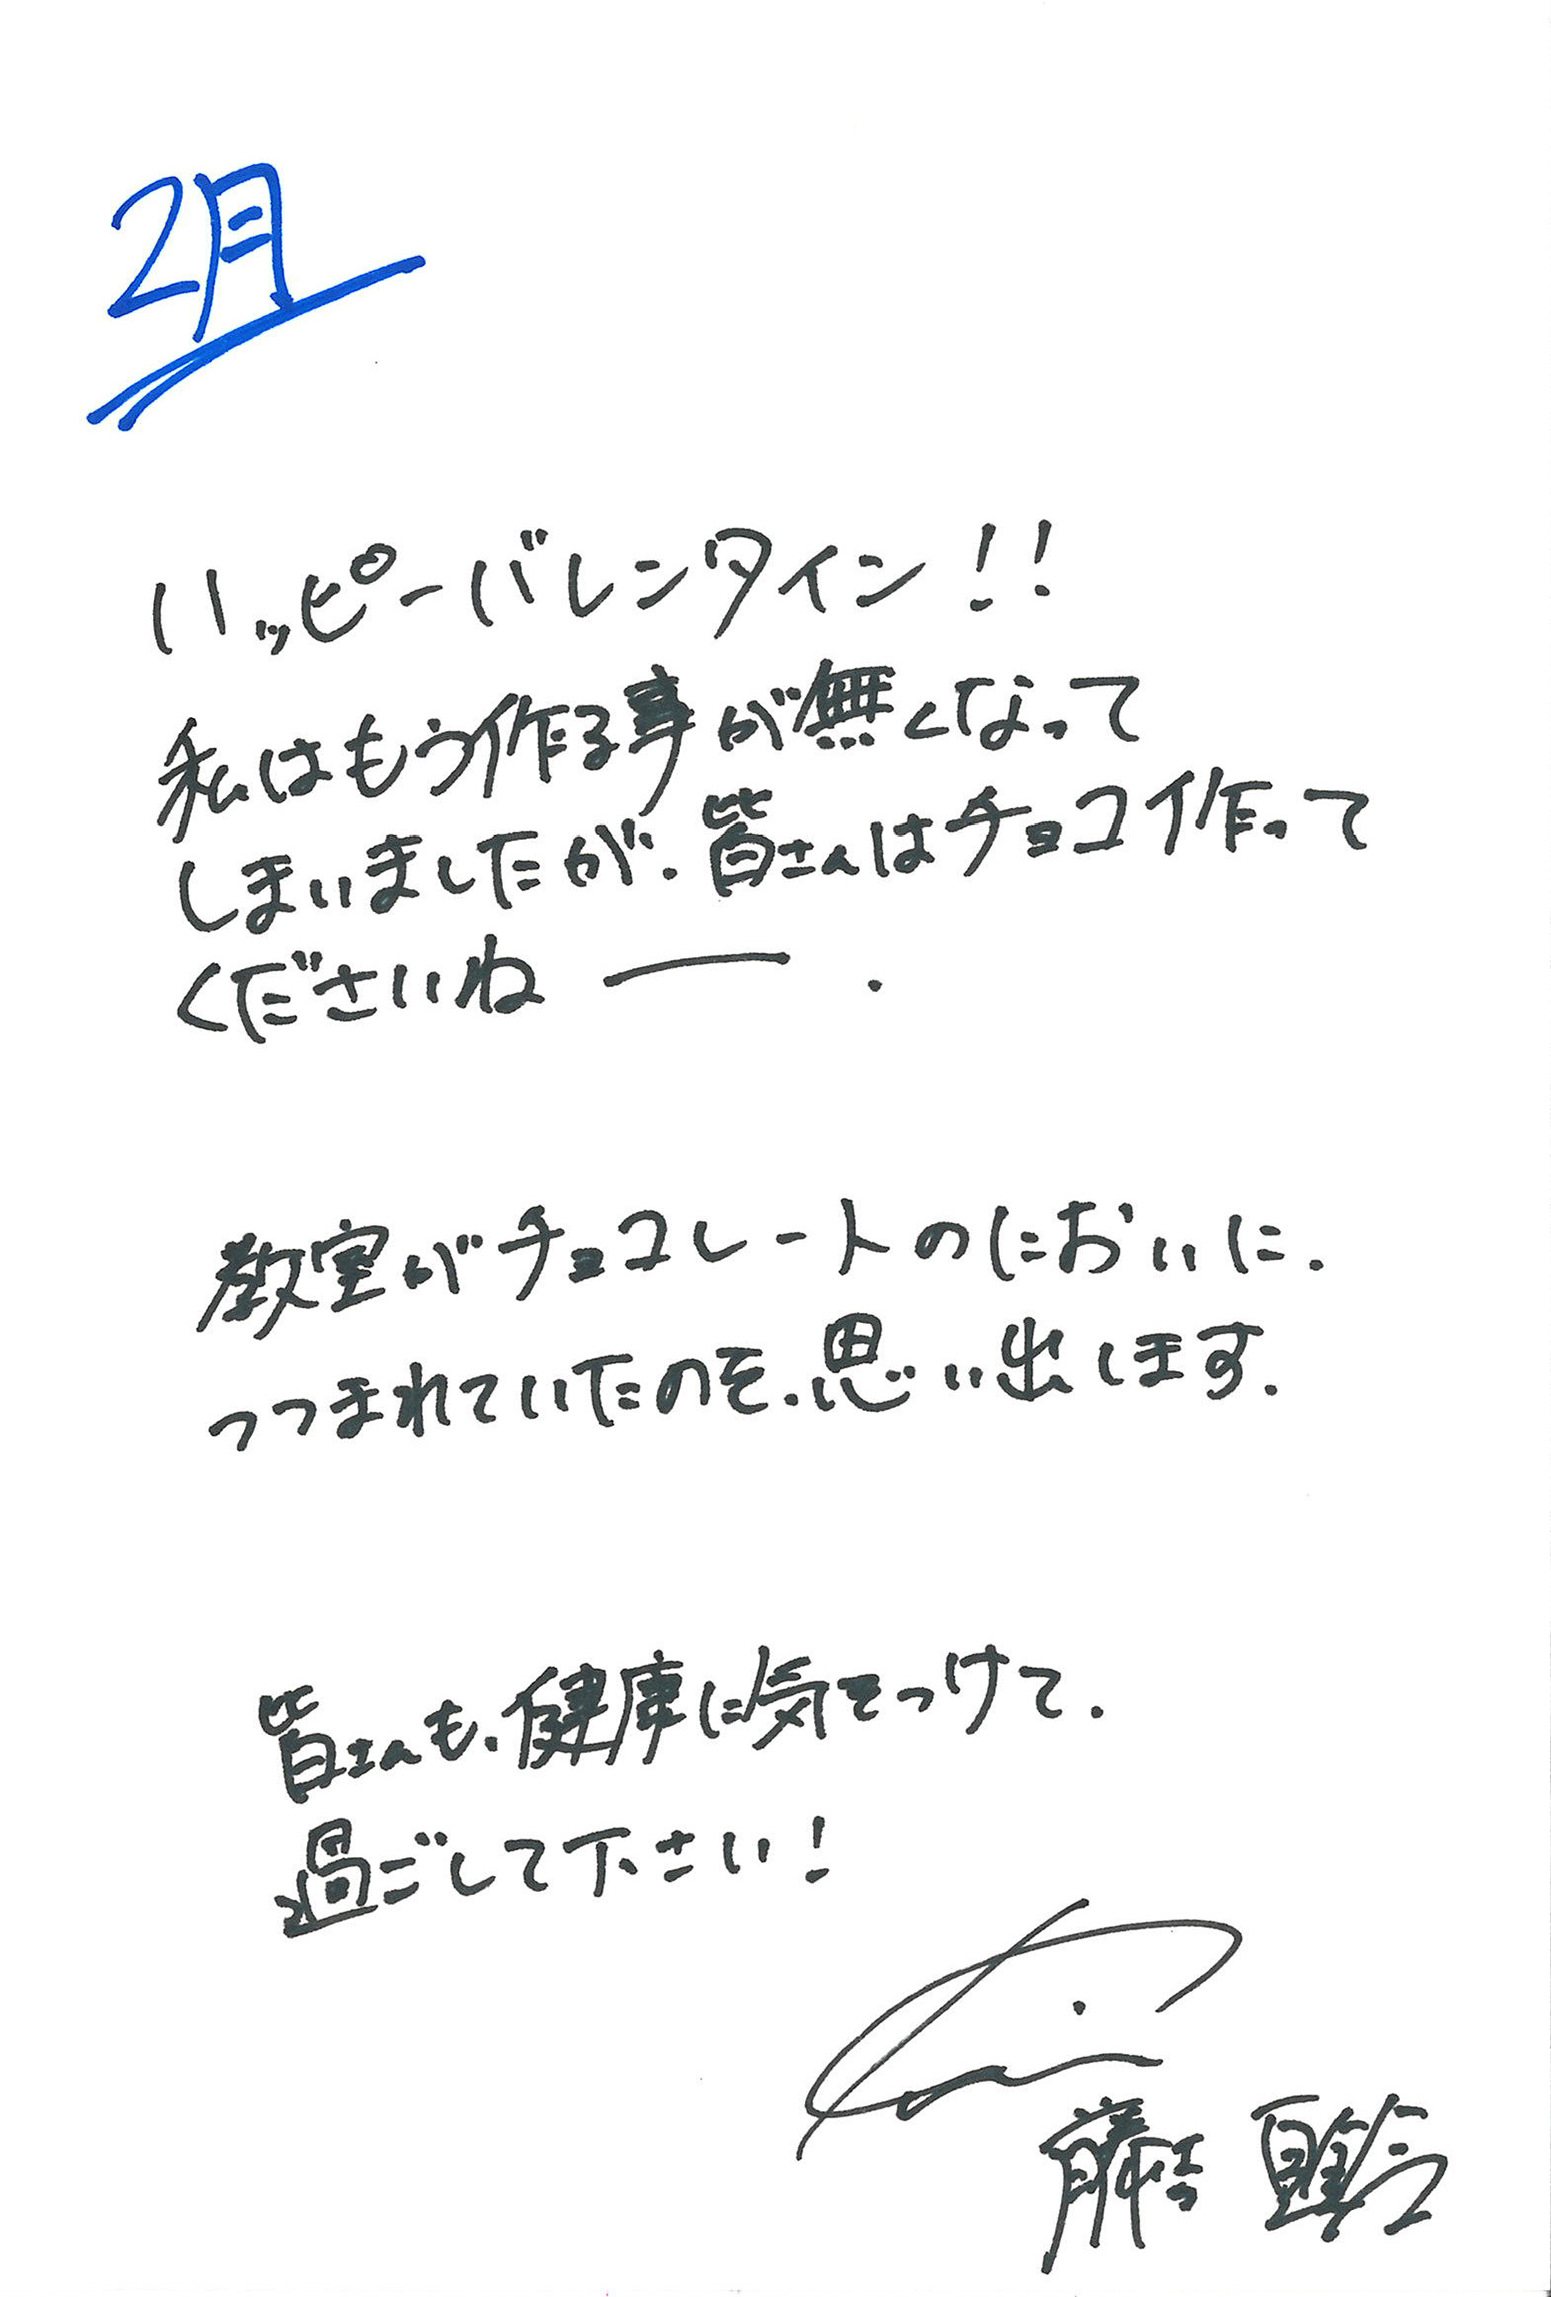 2月
ハッピーバレンタイン!!
私はもう作る事が無くなって
しまいましたが、皆さんはチョコ作って
くださいねー.
教室がチョコレートのにおいに、
つつまれていたのを、思い出します.
皆さんも、健康に気をつけて、
過ごして下さい!